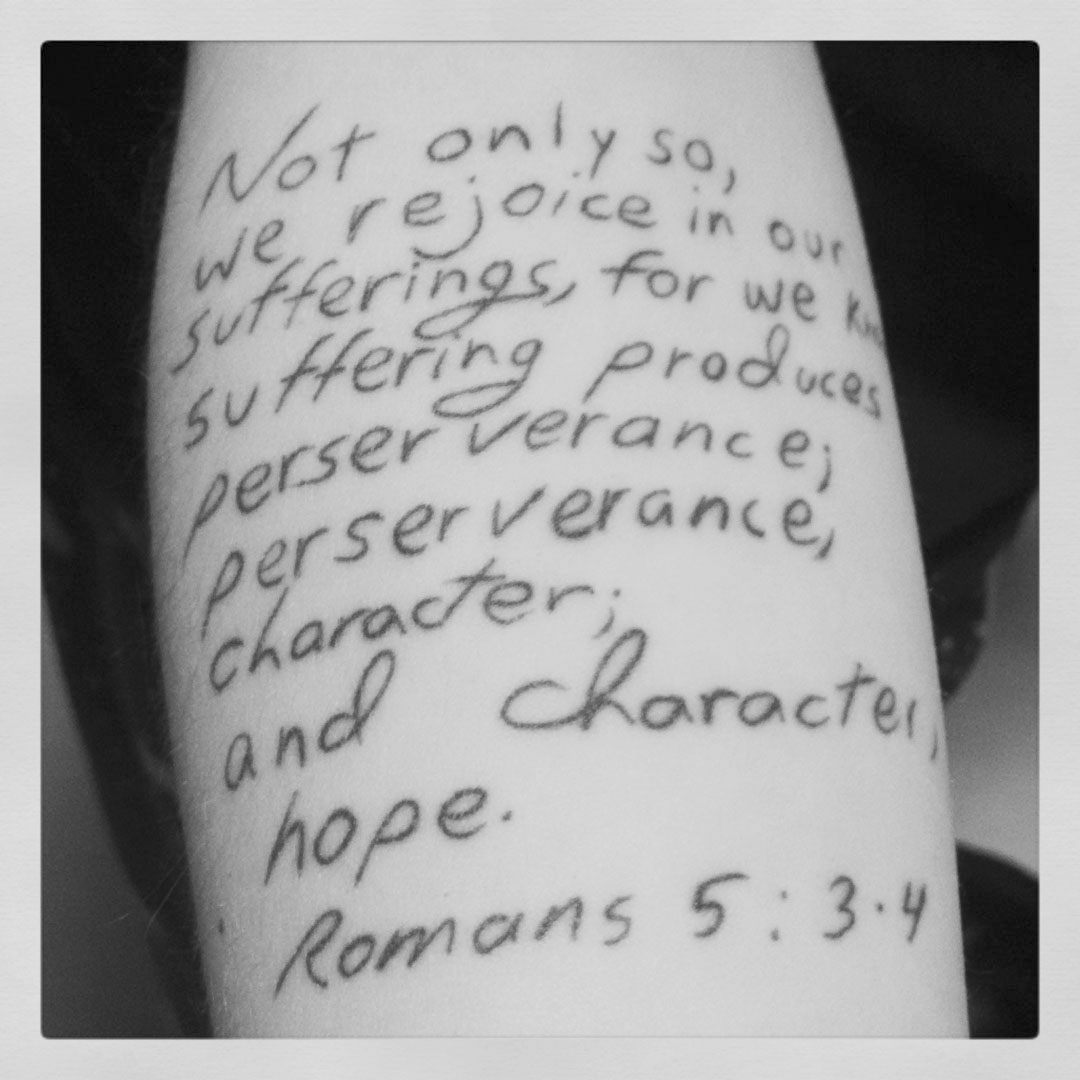 Not only so,
we rejoice in our
sufferings, for we
suffering produces
perserverance;
perserverance,
character;
and character,
hope.
Romans 5:3-4